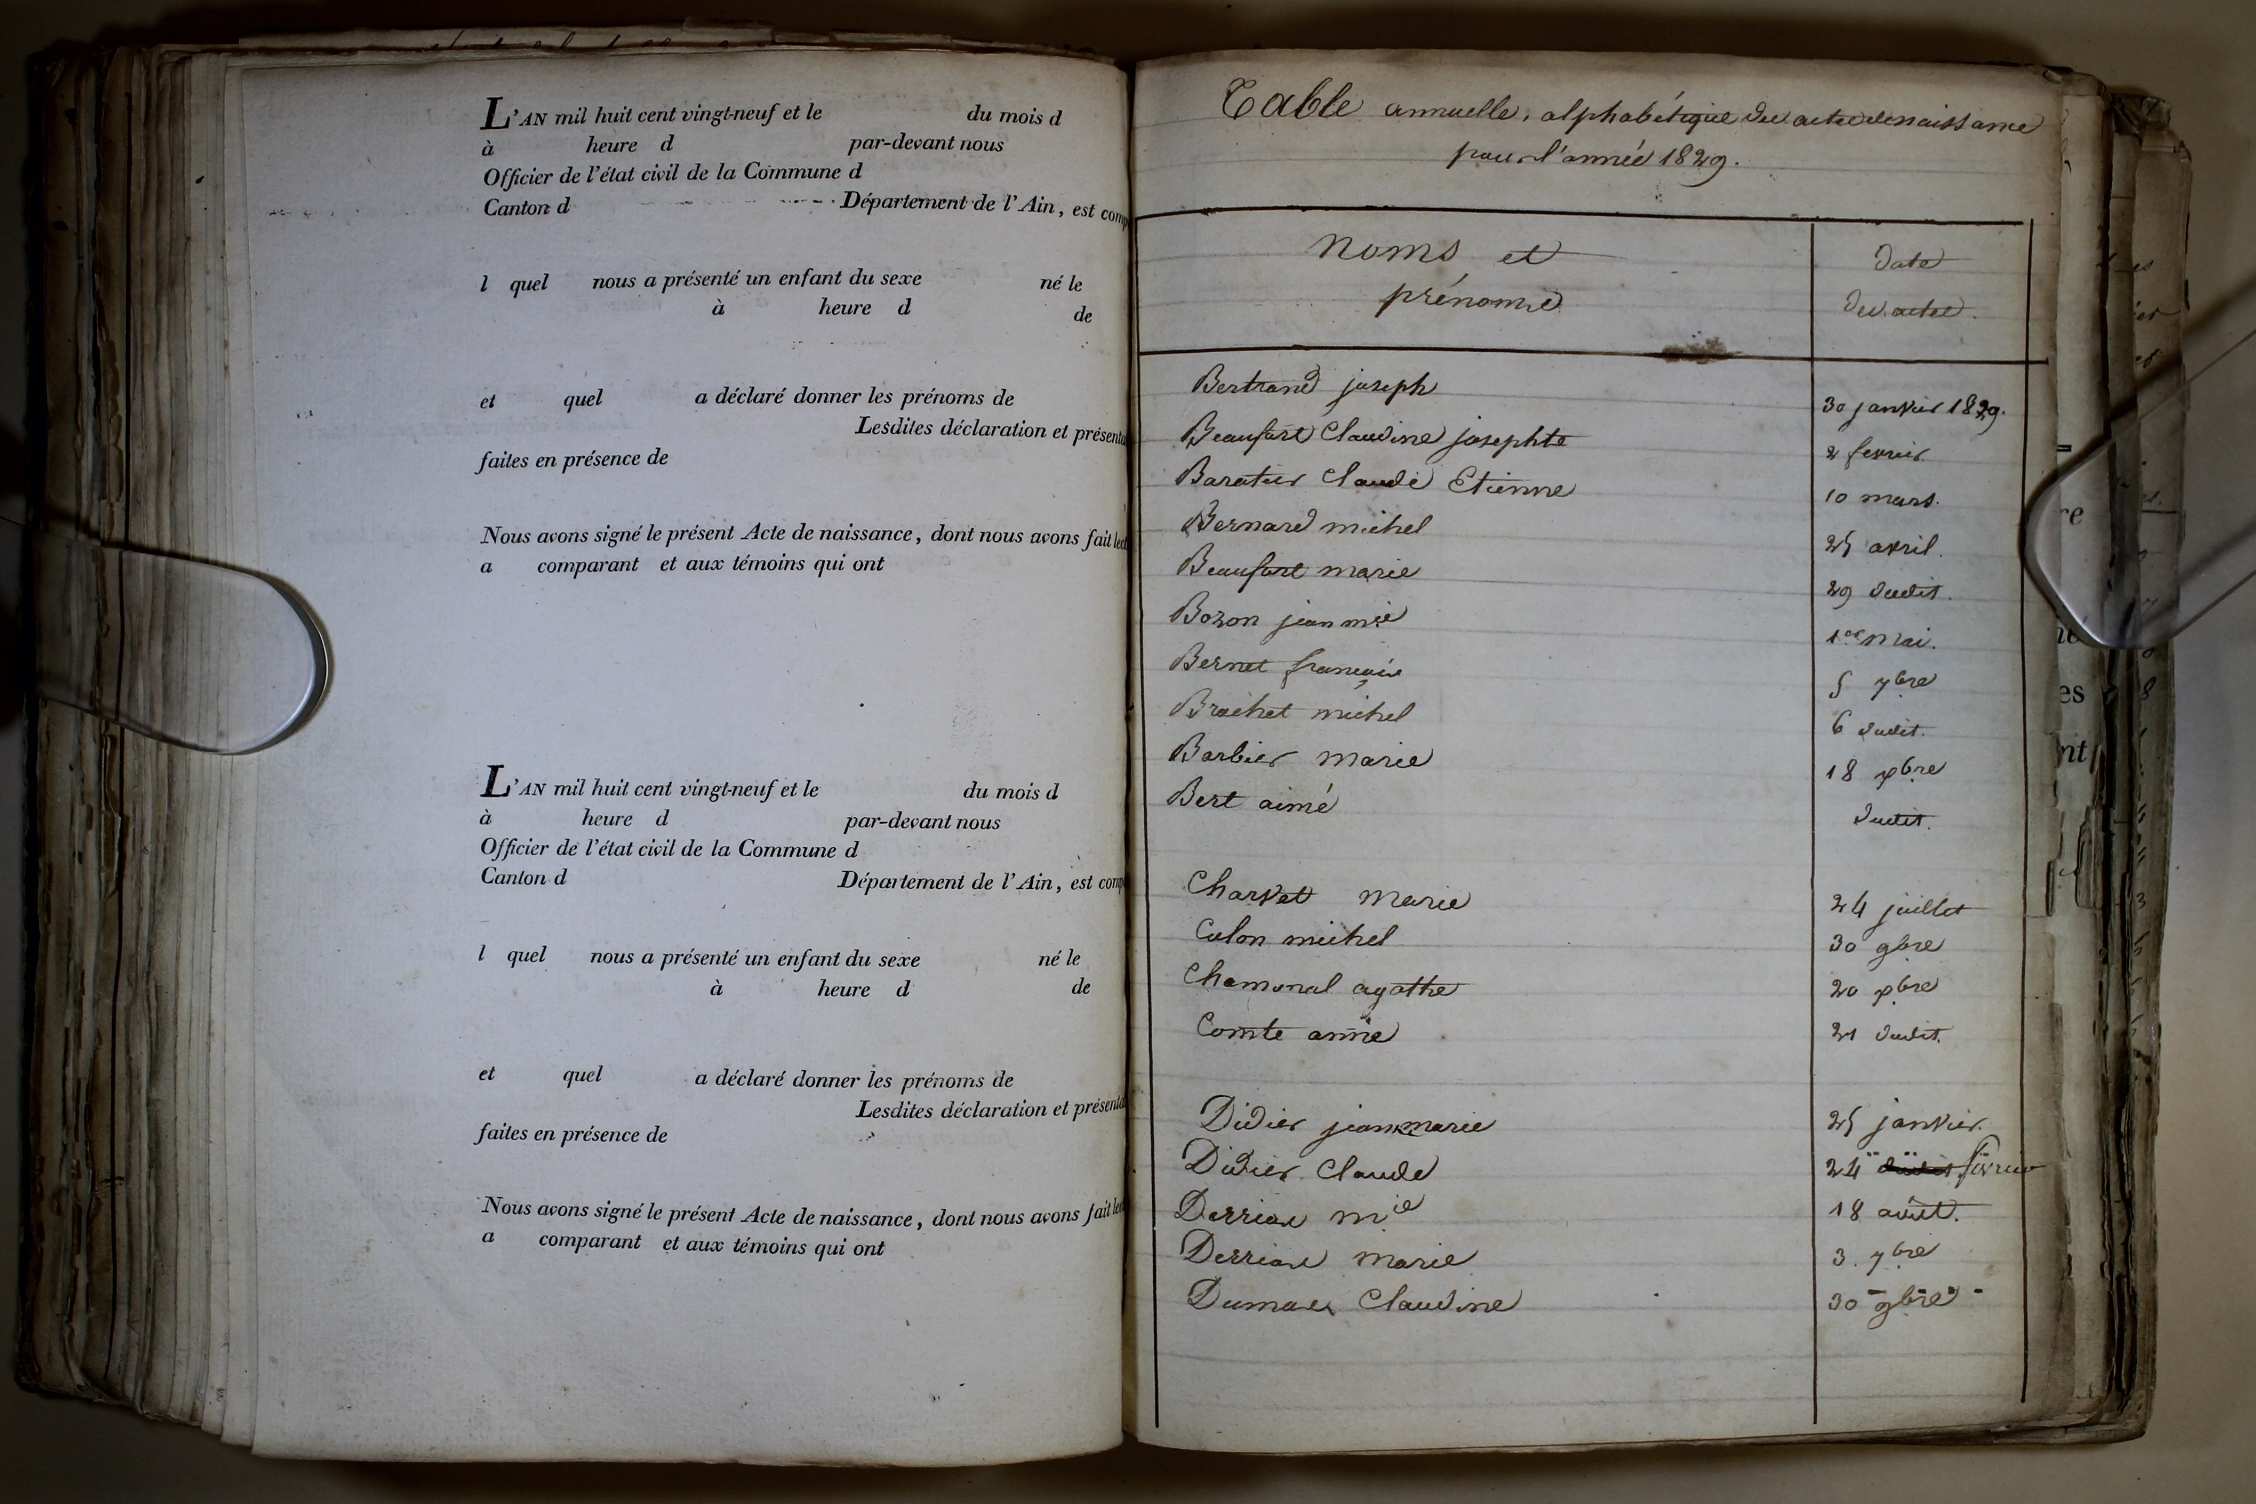 L'AN mil huit cent vingt-neuf et le du mois d
à heure d par-devant nous
Officier de l'état civil de la Commune d
Canton d Département de l'Ain, est comp
l quel nous a présenté un enfant du sexe né le
à heure d de
et quel a déclaré donner les prénoms de
Lesdites déclaration et présenta
faites en présence de
Nous avons signé le présent Acte de naissance, dont nous avons fait lect
a comparant et aux témoins qui ont
L'AN mil huit cent vingt-neuf et le du mois d
à heure d par-devant nous
Officier de l'état civil de la Commune d
Canton d Département de l'Ain, est comp
l quel nous a présenté un enfant du sexe né le
à heure d de
et quel a déclaré donner les prénoms de
Lesdites déclaration et présenta
faites en présence de
Nous avons signé le présent Acte de naissance, dont nous avons fait lec
a comparant et aux témoins qui ont
Table annuelle, alphabétique des actes de naissance
pour l'année 1829.
noms et
prénoms
date
des actes.
Bertrand joseph 30 janvier 1829.
Beaufort Claudine josephte 2 fevrier
Baratier Claude Etienne 10 mars.
Bernard michel 25 avril.
Beaufort marie 29 dudit.
Bozon jean mie 1er mai.
Bernet francois 5 7bre
Brachet michel 6 dudit.
Barbier marie 18 xbre
Bert aimé dudit.
Charvet marie 24 juillet
Colon michel 30 9bre
Chamonal agathe 20 xbre
Comte anne 21 dudit.
Didier jean marie 25 janvier.
Didier Claude 24 dudit fevrier
Derriaz mie 18 août.
Derriaz marie 3. 7bre
Dumas Claudine 30 9bre